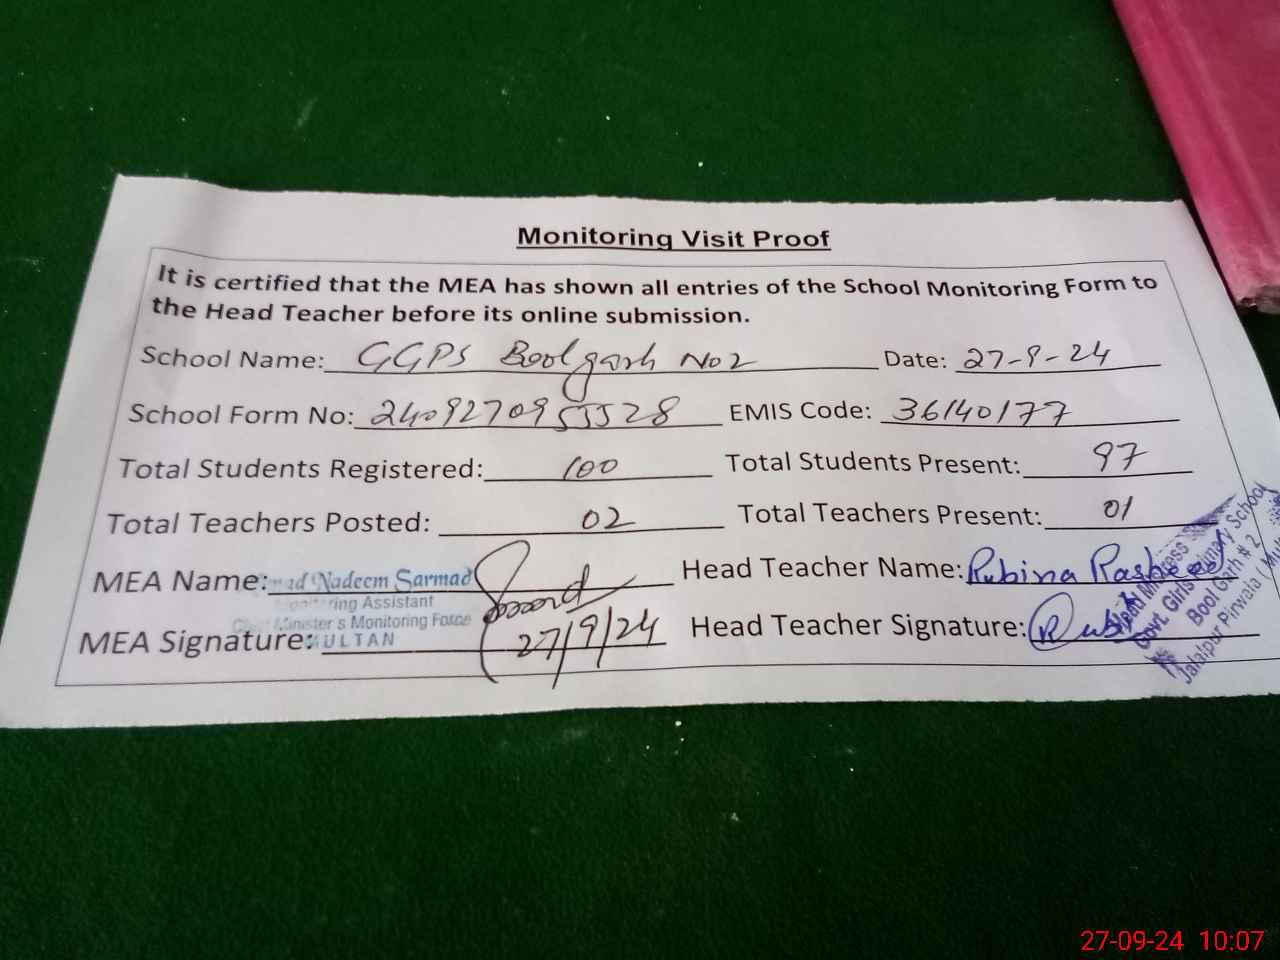 Monitoring Visit Proof
It is certified that the MEA has shown all entries of the School Monitoring Form to
the Head Teacher before its online submission.
School Name: GGPS Boolgarh No 2 Date: 27-9-24
School Form No: 2409270955528 EMIS Code: 36140177
Total Students Registered: 100 Total Students Present: 97
Total Teachers Posted: 02 Total Teachers Present: 01
MEA Name: Nadeem Sarmad Head Teacher Name: Rubina Rasheed
Monitoring Assistant
Chief Minister's Monitoring Force
MEA Signature: MULTAN 27/9/24 Head Teacher Signature: Rubina
Head Mistress
Govt. Girls Primary School
Bool Garh # 2
Jalalpur Pirwala
27-09-24 10:07